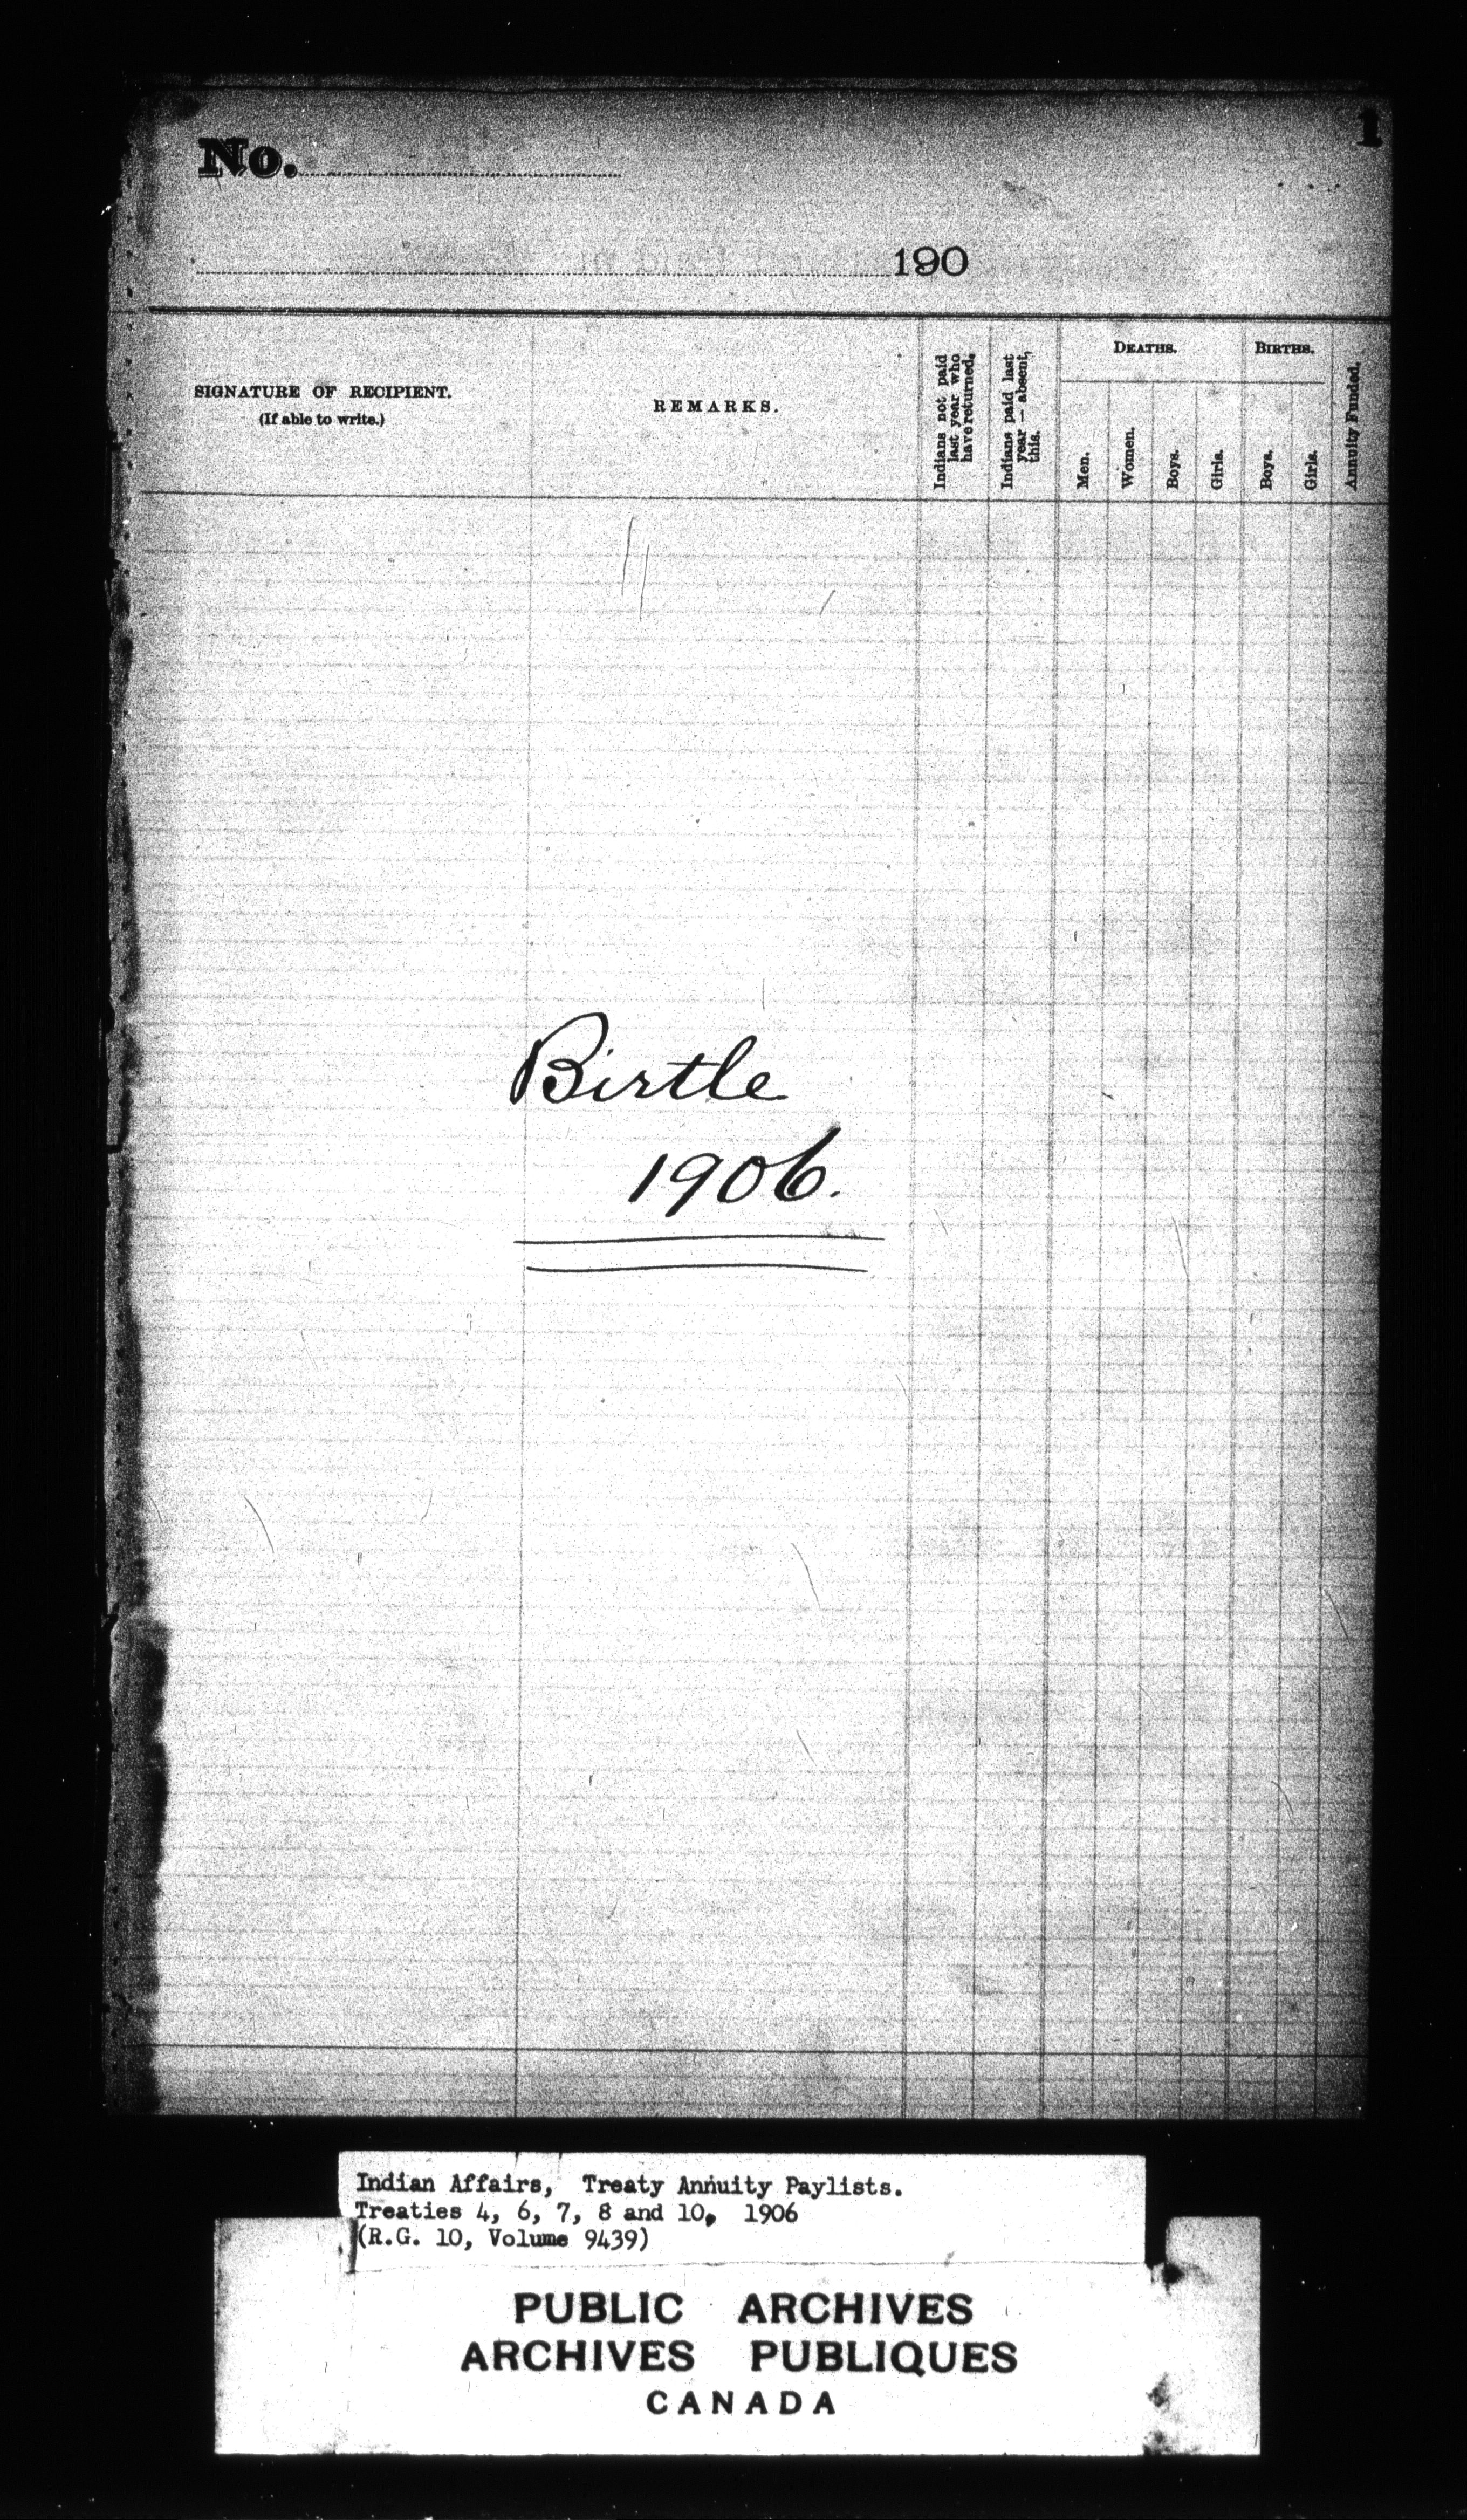 1
No.
190
SIGNATURE OF RECIPIENT.
(If able to write.)
REMARKS.
Indians not paid
last year who
have returned.
Indians paid last
year — absent,
this.
DEATHS.
Men.
Women.
Boys.
Girls.
BIRTHS.
Boys.
Girls.
Annuity Funded.
Birtle
1906.
Indian Affairs, Treaty Annuity Paylists.
Treaties 4, 6, 7, 8 and 10, 1906
(R.G. 10, Volume 9439)
PUBLIC ARCHIVES
ARCHIVES PUBLIQUES
CANADA